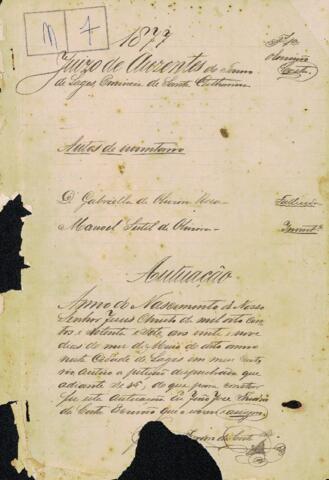 M 4
1877
Juizo de Auzentes do Termo
de Lages Provincia de Santa Catharina
Escrivão
Costa
Autos de inventario
D. Gabriella de Oliveira
Fallecida
Manoel
de Oliveira
Invent.e
Autuação
Anno do Nascimento de Nosso
Senhor Jesus Christo de mil oito cen
tos e setenta e sete aos vinte e nove
dias do mez de Maio do dito anno
nesta Cidade de Lages em meu Carto
rio autuo a petição despachada que
adiante se vê, do que para constar
fiz esta autuação Eu João José
da Costa Escrivão que o escrevi
da Costa